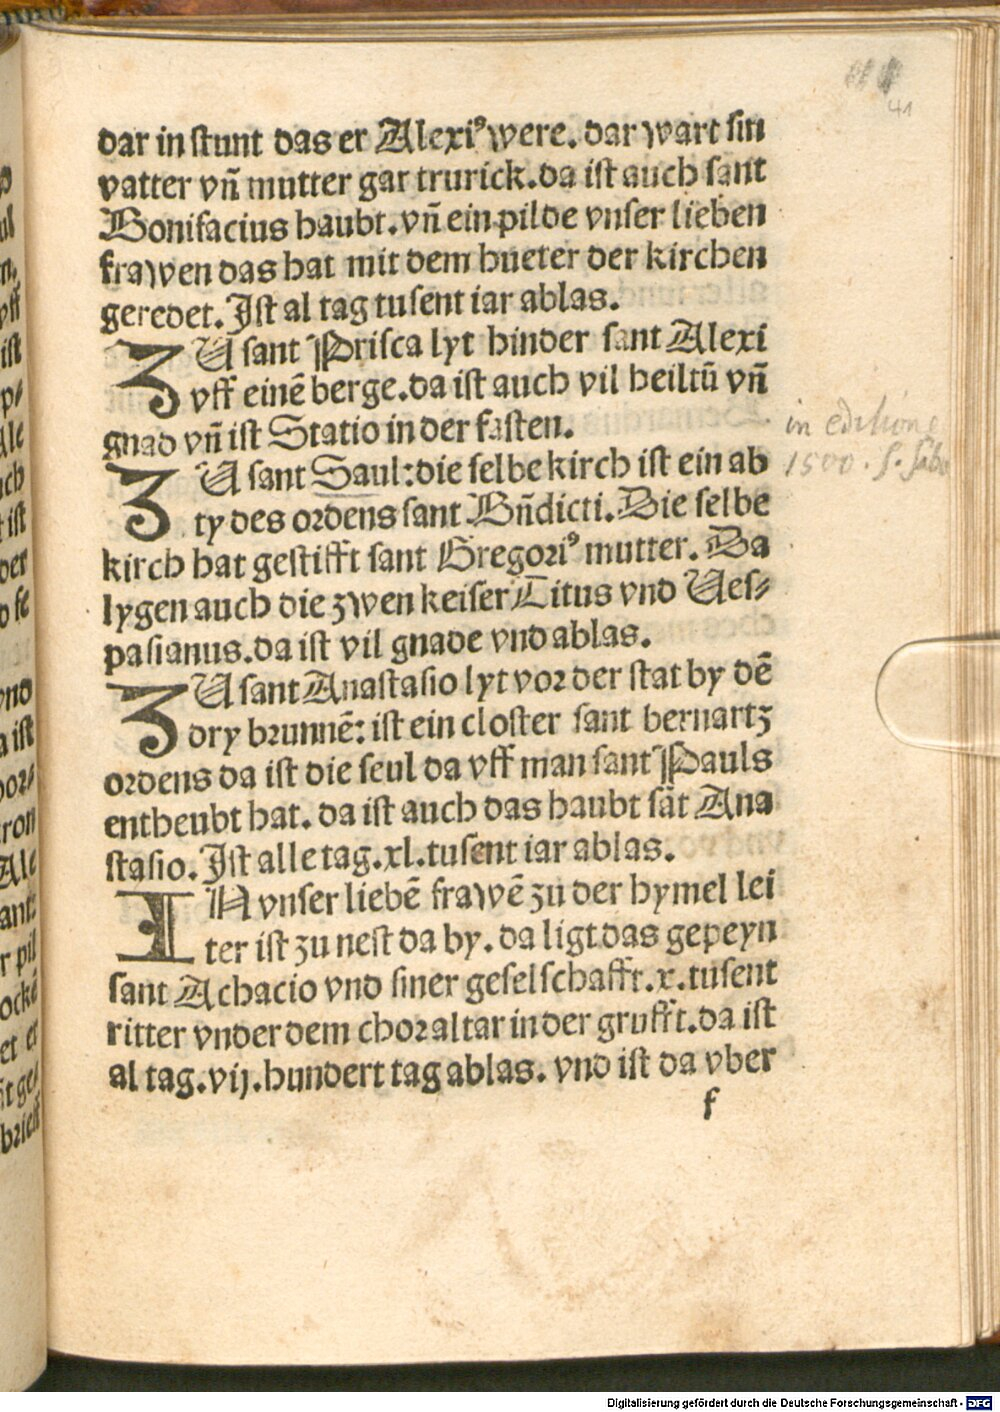 41
dar in stunt das er Alexiꝰ were. dar wart sin
vatter vñ mutter gar trurick. da ist auch sant
Bonifacius haubt. vñ ein pilde vnser lieben
frawen das hat mit dem hueter der kirchen
geredet. Ist al tag tusent iar ablas.
ZU sant Prisca lyt hinder sant Alexi
vff einē berge. da ist auch vil heiltū vñ
gnad vñ ist Statio in der fasten.
in editione
ZU sant Saul: die selbe kirch ist ein ab
1500. S. Saba
ty des ordens sant Bñdicti. Die selbe
kirch hat gestifft sant Gregoriꝰ mutter. Da
lygen auch die zwen keiser Titus vnd Ves⸗
pasianus. da ist vil gnade vnd ablas.
ZU sant Anastasio lyt vor der stat by dē
dry brunnē: ist ein closter sant bernartz
ordens da ist die seul da vff man sant Pauls
entheubt hat. da ist auch das haubt sāt Ana
stasio. Ist alle tag. xl. tusent iar ablas.
IN vnser liebē frawē zu der hymel lei
ter ist zu nest da by. da ligt das gepeyn
sant Achacio vnd siner geselschafft. x. tusent
ritter vnder dem chor altar in der grufft. da ist
al tag. vij. hundert tag ablas. vnd ist da vber
f
Digitalisierung gefördert durch die Deutsche Forschungsgemeinschaft - DFG